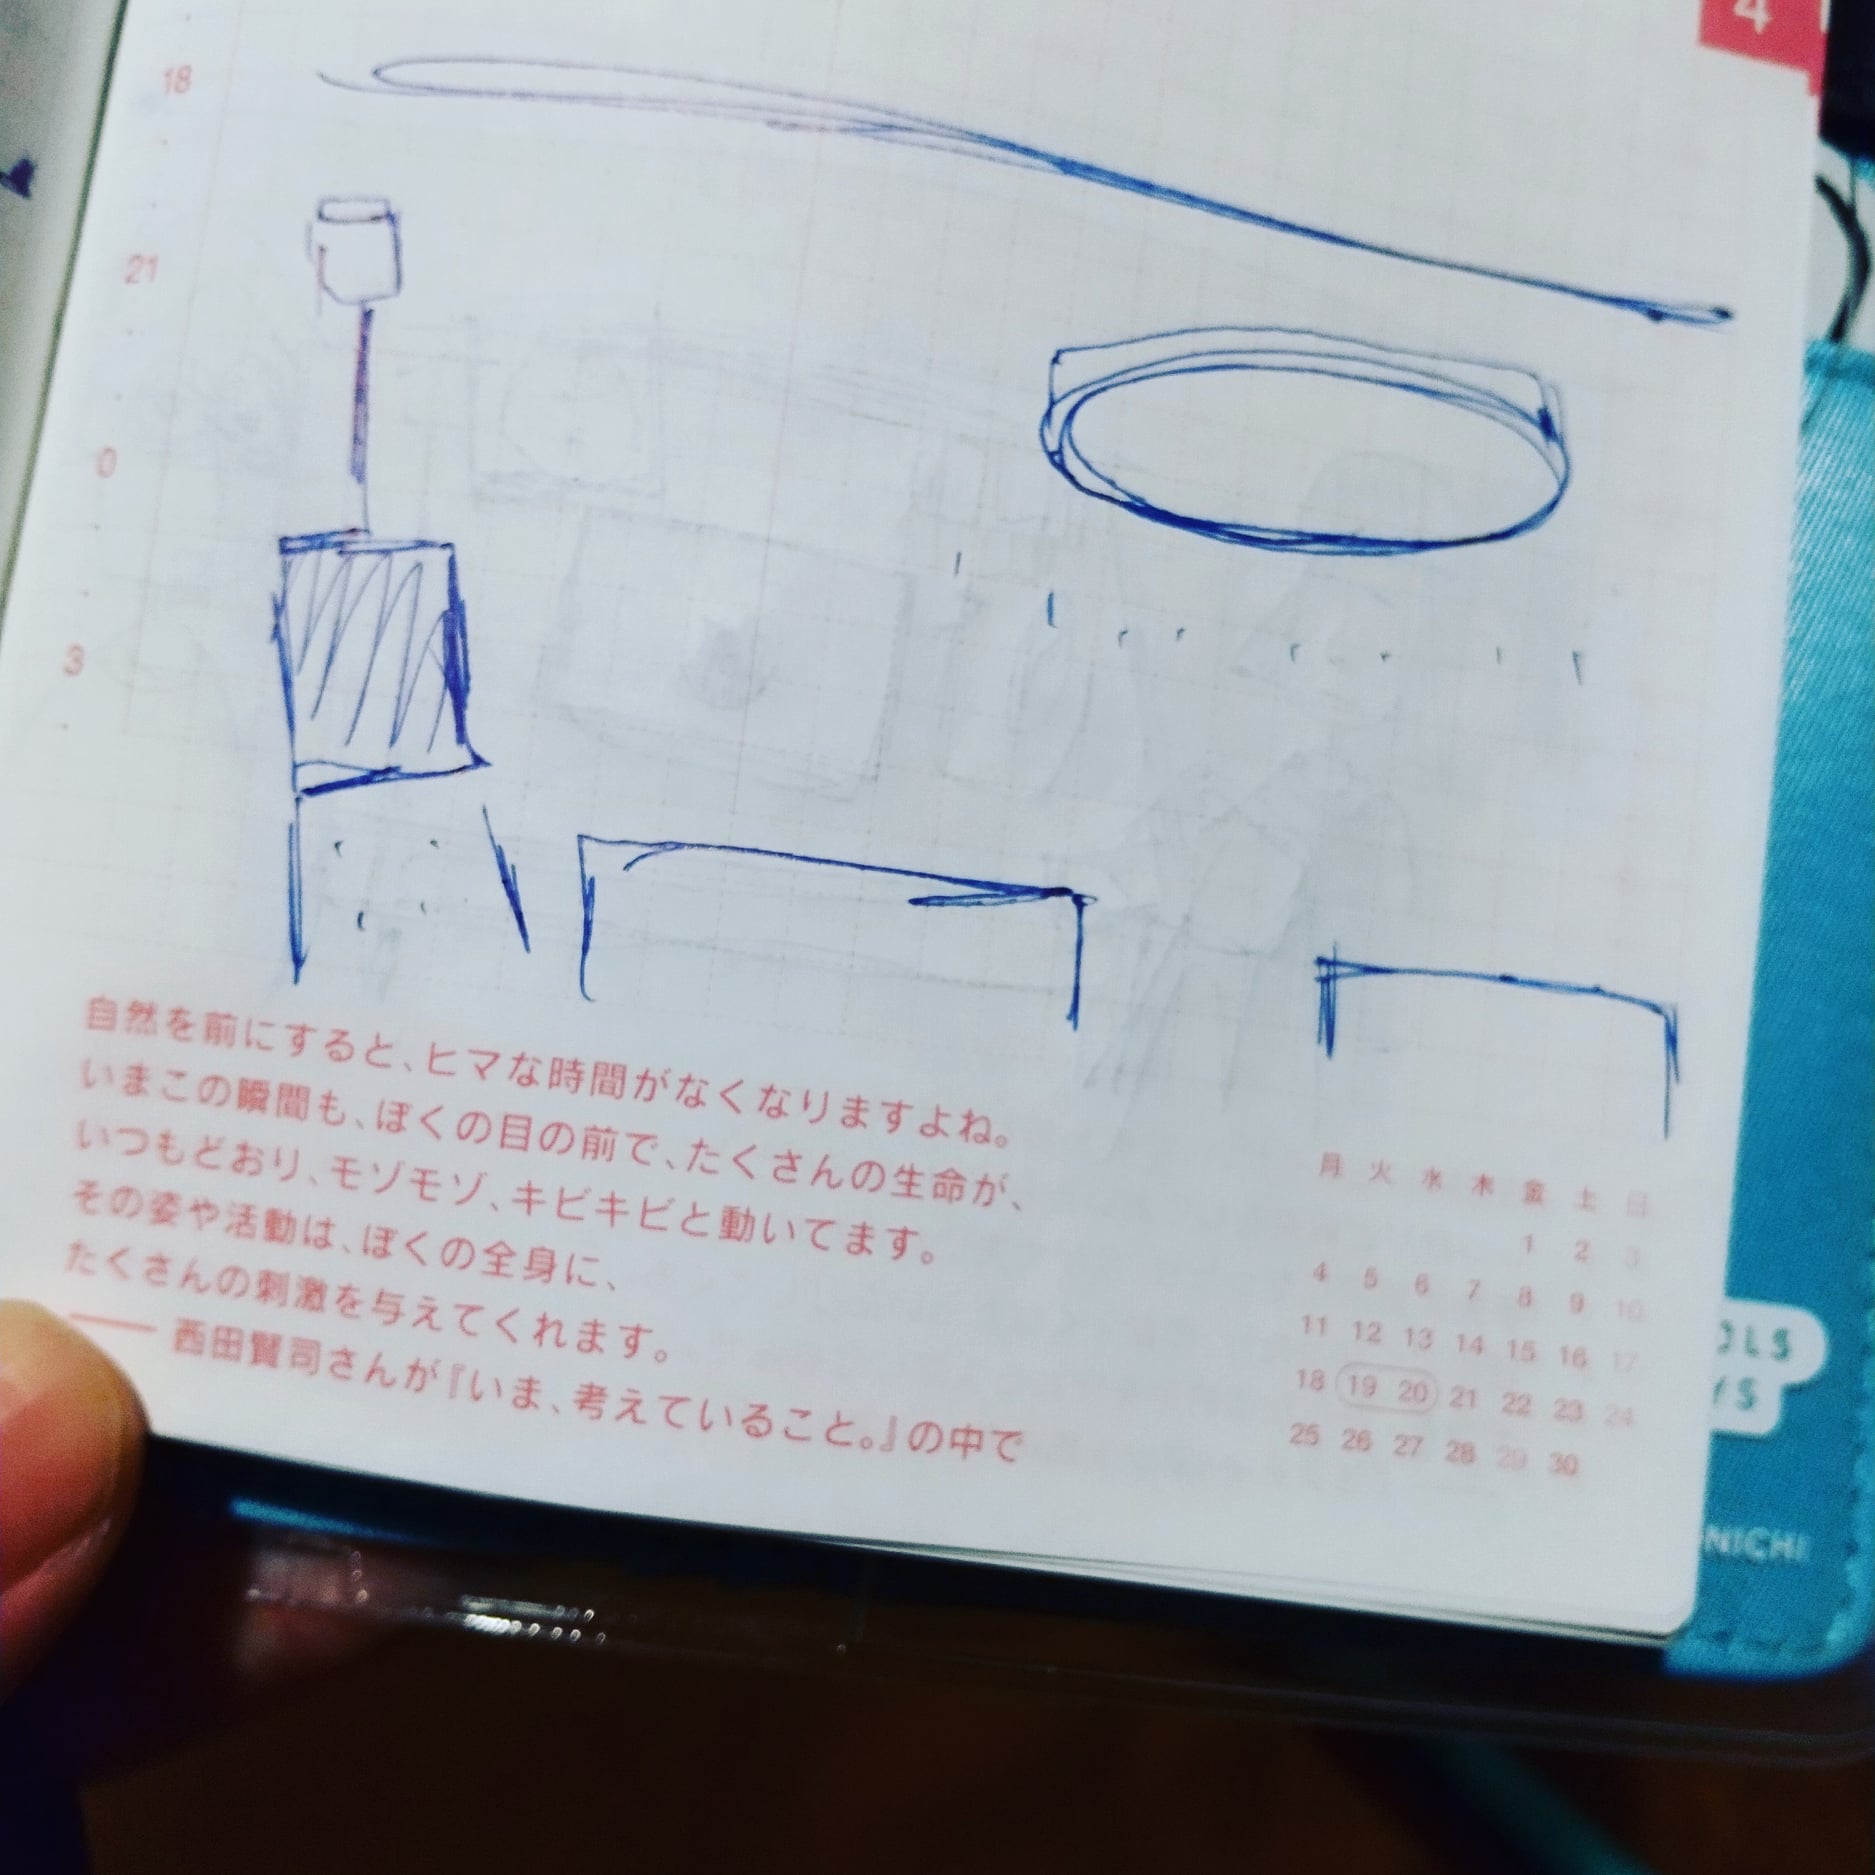 4
18
21
0
3
自然を前にすると、ヒマな時間がなくなりますよね。
いまこの瞬間も、ぼくの目の前で、たくさんの生命が、
いつもどおり、モゾモゾ、キビキビと動いてます。
その姿や活動は、ぼくの全身に、
たくさんの刺激を与えてくれます。
—— 西田賢司さんが『いま、考えていること。』の中で
月 火 水 木 金 土 日
1 2 3
4 5 6 7 8 9 10
11 12 13 14 15 16 17
18 19 20 21 22 23 24
25 26 27 28 29 30
OLS
YS
NICHI